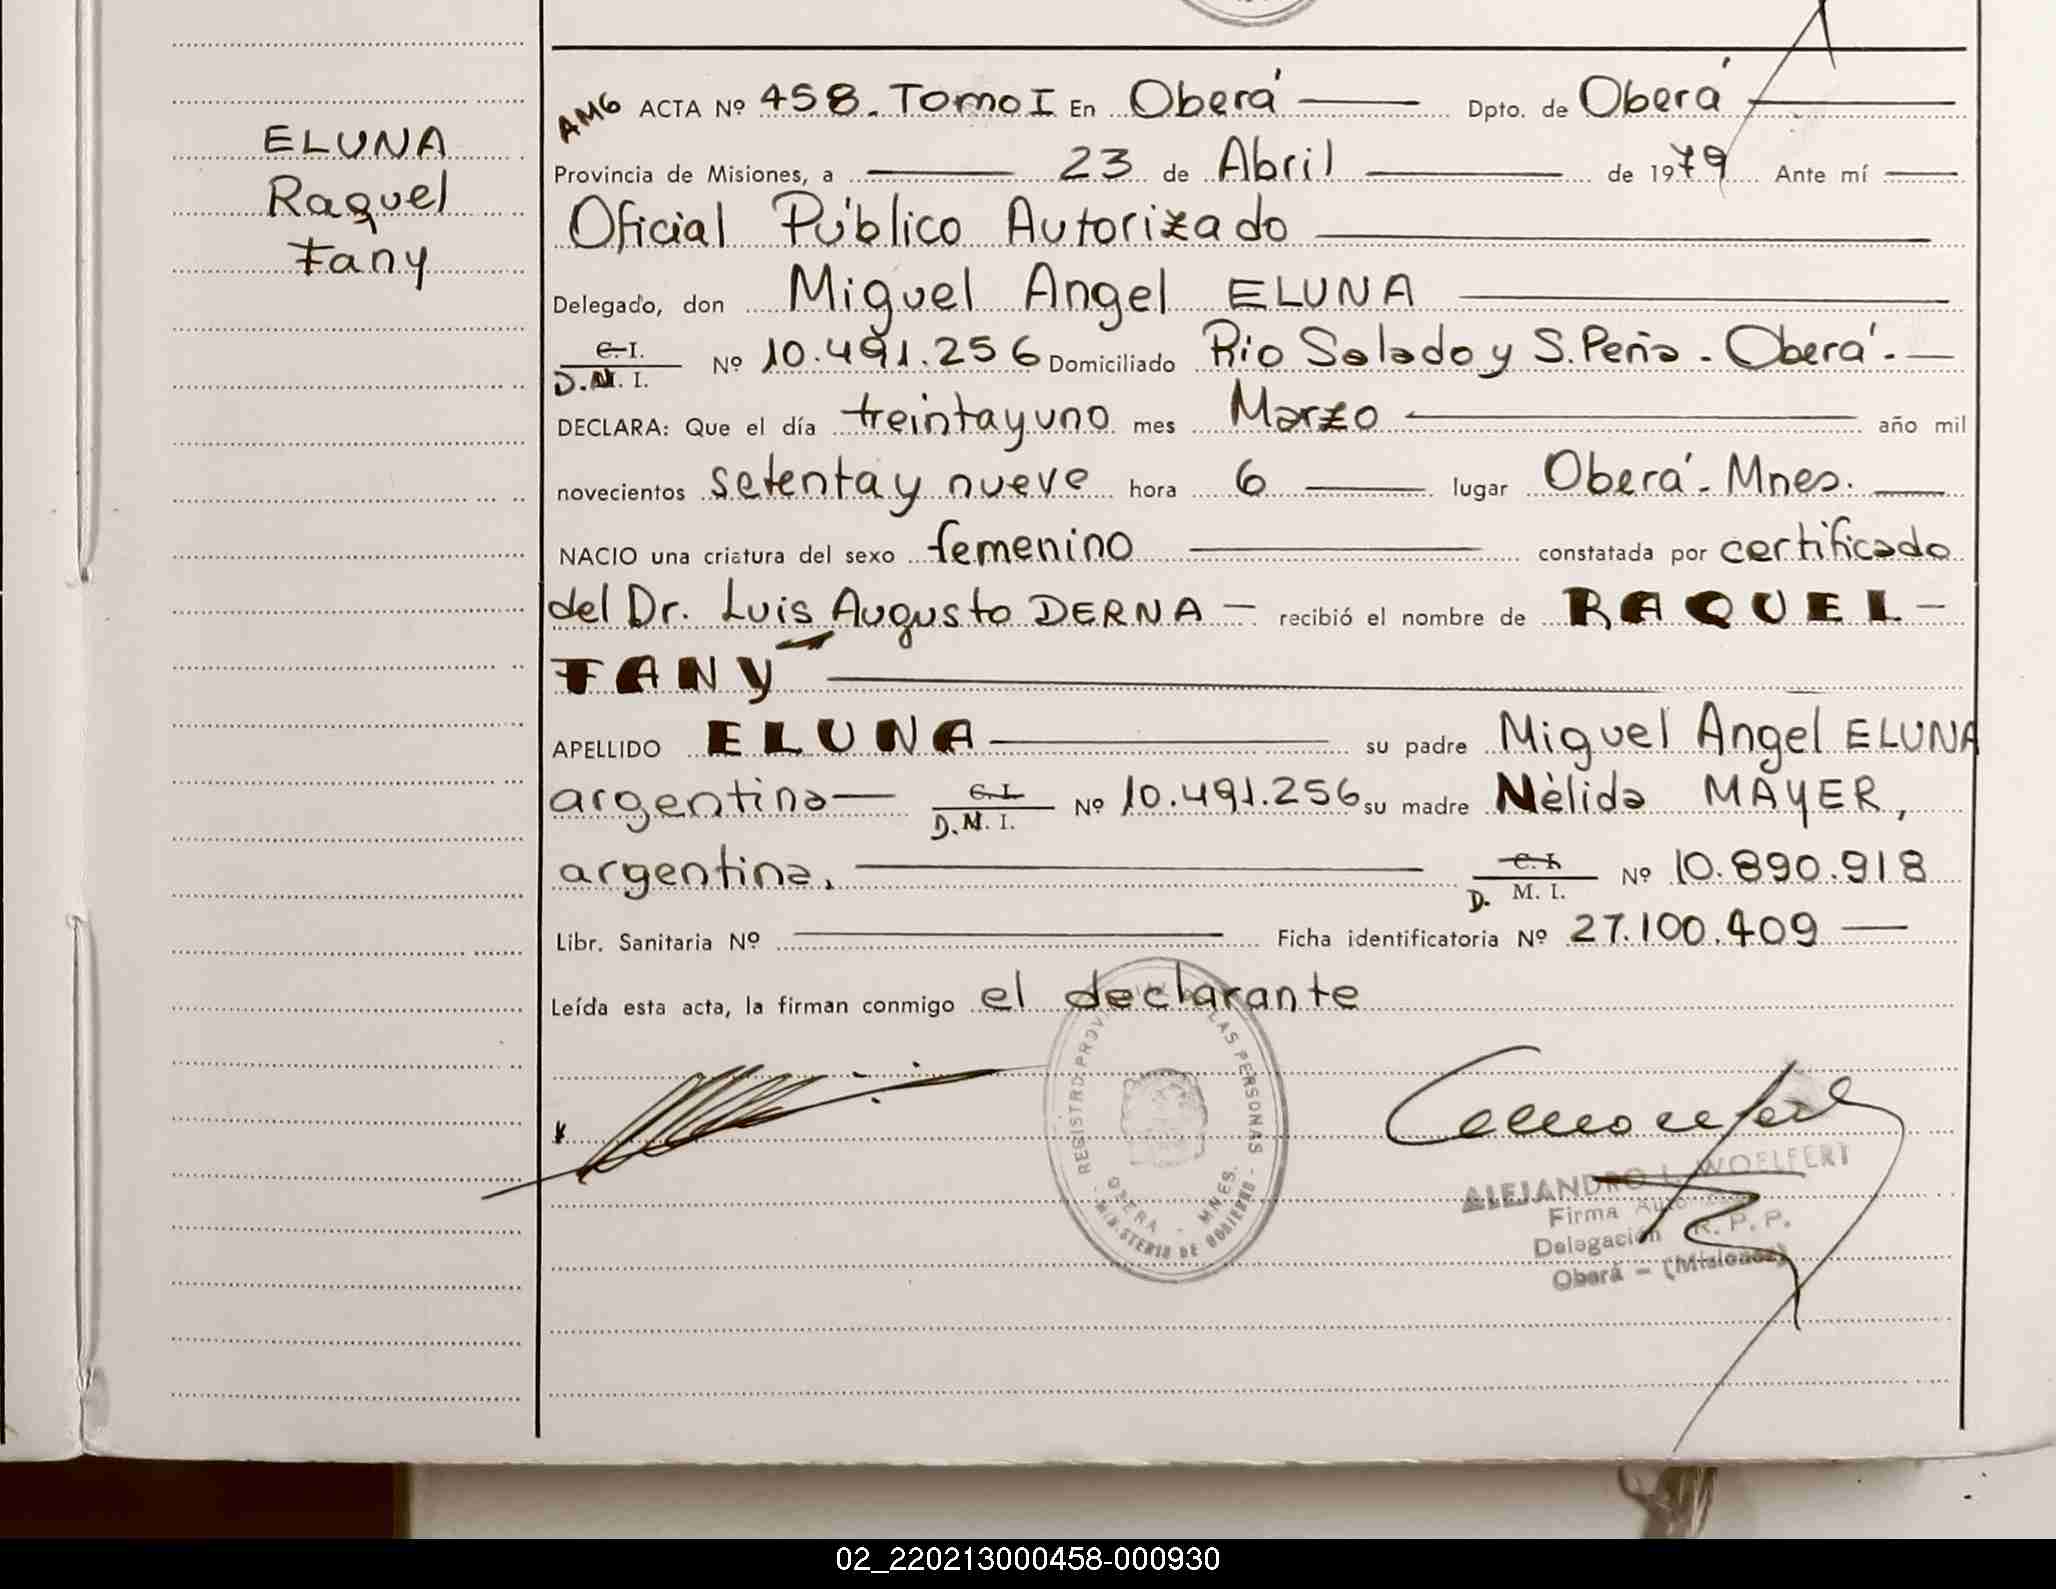 ELUNA
Raquel
Fany
AMG ACTA Nº 458. Tomo I En Oberá Dpto. de Oberá
Provincia de Misiones, a 23 de Abril de 1979 Ante mí
Oficial Público Autorizado
Delegado, don Miguel Angel ELUNA
C. I.
D.M. I. Nº 10.491.256 Domiciliado Rio Salado y S. Peña - Oberá.
DECLARA: Que el día treinta y uno mes Marzo año mil
novecientos setenta y nueve hora 6 lugar Oberá - Mnes.
NACIO una criatura del sexo femenino constatada por certificado
del Dr. Luis Augusto DERNA - recibió el nombre de RAQUEL -
FANY
APELLIDO ELUNA su padre Miguel Angel ELUNA
argentino C. I.
D.M. I. Nº 10.491.256 su madre Nèlida MAYER,
argentina. C. I.
D. M. I. Nº 10.890.918
Libr. Sanitaria Nº Ficha identificatoria Nº 27.100.409
Leída esta acta, la firman conmigo el declarante
REGISTRO PROV LAS PERSONAS
OBERA - MNES.
- MINISTERIO DE GOBIERNO -
ALEJANDRO L. WOELFERT
Firma
Delegación R. P. P.
Oberá - (Misiones)
02_220213000458-000930